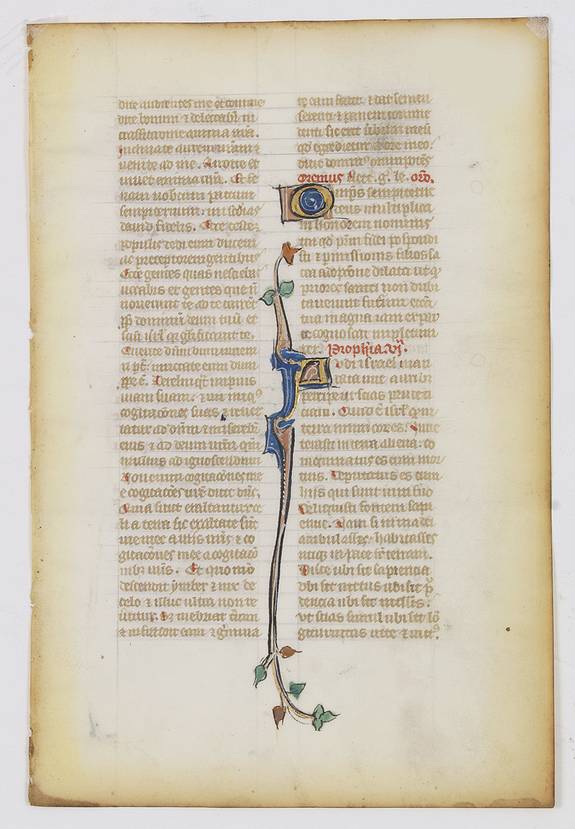 dite audientes me et come
dite bonum et delectabit' in
crassitudine anima vr̄a.
Inclinate aurem vr̄am et
venite ad me. Audite et
vivet anima vr̄a. Et fe
riam vobiscum pactum
sempiternum. mīas
david fideles. Ecce testem
populis dedi eum ducem
ac preceptorem gentibus
Ecce gentes quas nesciebas
vocabis et gentes que nō
noverunt te ad te current
ppt̄ dominum deum tuū et
scm̄ isrl' qr glorificavit te.
Querite dn̄m dum inveniri
pt̄. invocate eum dum
ppe ē. Derelinqt impius
viam suam. et vir iniqs
cogitacōnes suas et rever
tatur ad dn̄m et miserebit'
eius et ad deum nr̄m qm̄
multus ad ignoscendum
Non enim cogitacōnes mee
cogitacōes vr̄e dicit dn̄s.
Quia sicut exaltantur ce
li a terra sic exaltate sūt
vie mee a viis vr̄is et co
gitacōnes mee a cogitacōi
nibus vr̄is. Et quomō
descendit ymber et nix de
celo et illuc ultra non re
vertitur. Et inebriat t̄ram
et infundit eam et gmina
re eam facit. et dat semen
serenti et panem come
denti sic erit verbum meū
qd egredietur de ore meo.
dicit dominus omnipotēs
Oremus flect. g. le. orō.
Omps sempiterne
deus multiplica
in honorem nominis
tui qd prm̄ fidei spopondi
sti et pmissionis filios sa
cra adoptione dilata ut qd
priores sancti non dubi
taverunt futurum ecc̄a
tua magna iam ex par
te cognoscat impletum
per. Prophīa .vj.
Audi israel man
data vite auribus
percipe ut scias pruden
ciam. Quid ē isrl' qm̄
in terra inimicorū es. Inve
terasti in terra aliena. co
inquinatus es cum mor
tuis. Deputatus es cum
hiis qui sunt in inferno
Dereliquisti fontem sapi
encie. Nam si in via dei
ambulasses habitasses
utiq; in pace sup terram.
Disce ubi sit sapiencia
ubi sit virtus ubi sit pru
dencia ubi sit intellectus.
ut scias simul ubi sit lō
giturnitas vite et victus.